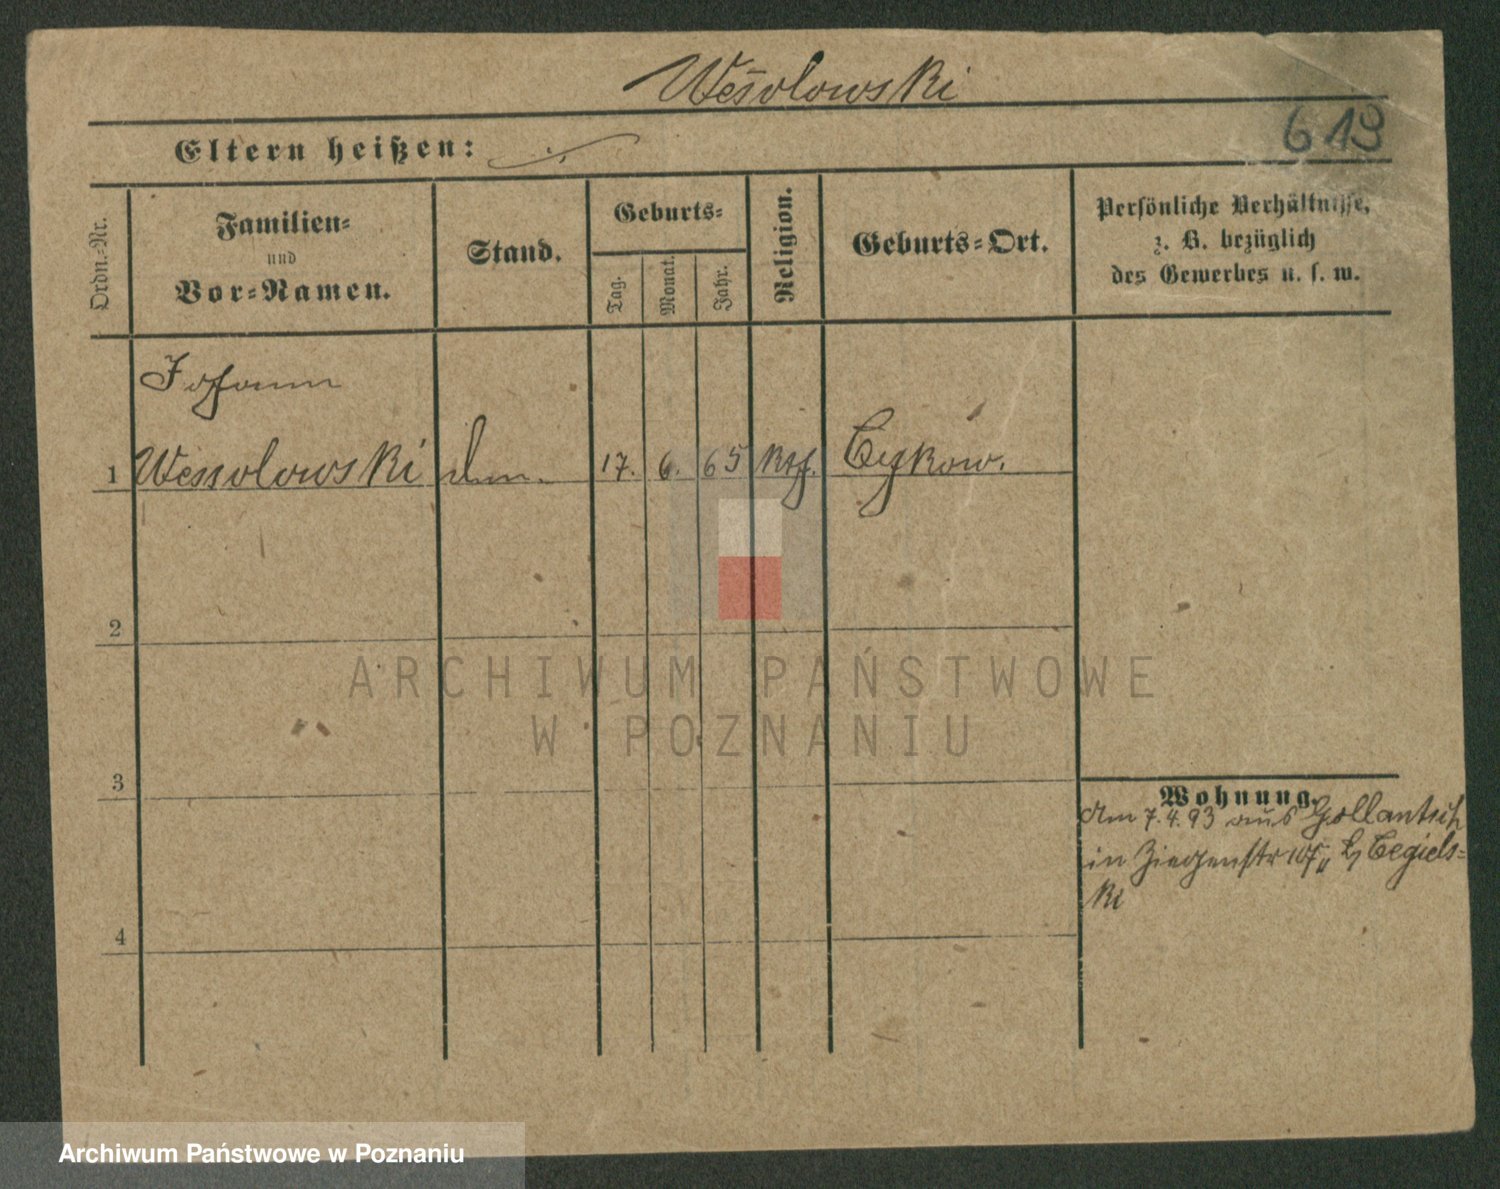 Wesolowski
619
Eltern heißen: ./.
Ordn.-Nr.
Familien-
und
Vor-Namen.
Stand.
Geburts-
Tag.
Monat.
Jahr.
Religion.
Geburts-Ort.
Persönliche Verhältnisse,
z. B. bezüglich
des Gewerbes u. s. w.
Johann
1 Wessolowski 17. 6. 65 Kth.
2
3
4
Wohnung.
Am 7.4.93 aus Gollantsch
in Ziegenstr b/ Cegiels-
ki
ARCHIWUM PAŃSTWOWE
W POZNANIU
Archiwum Państwowe w Poznaniu